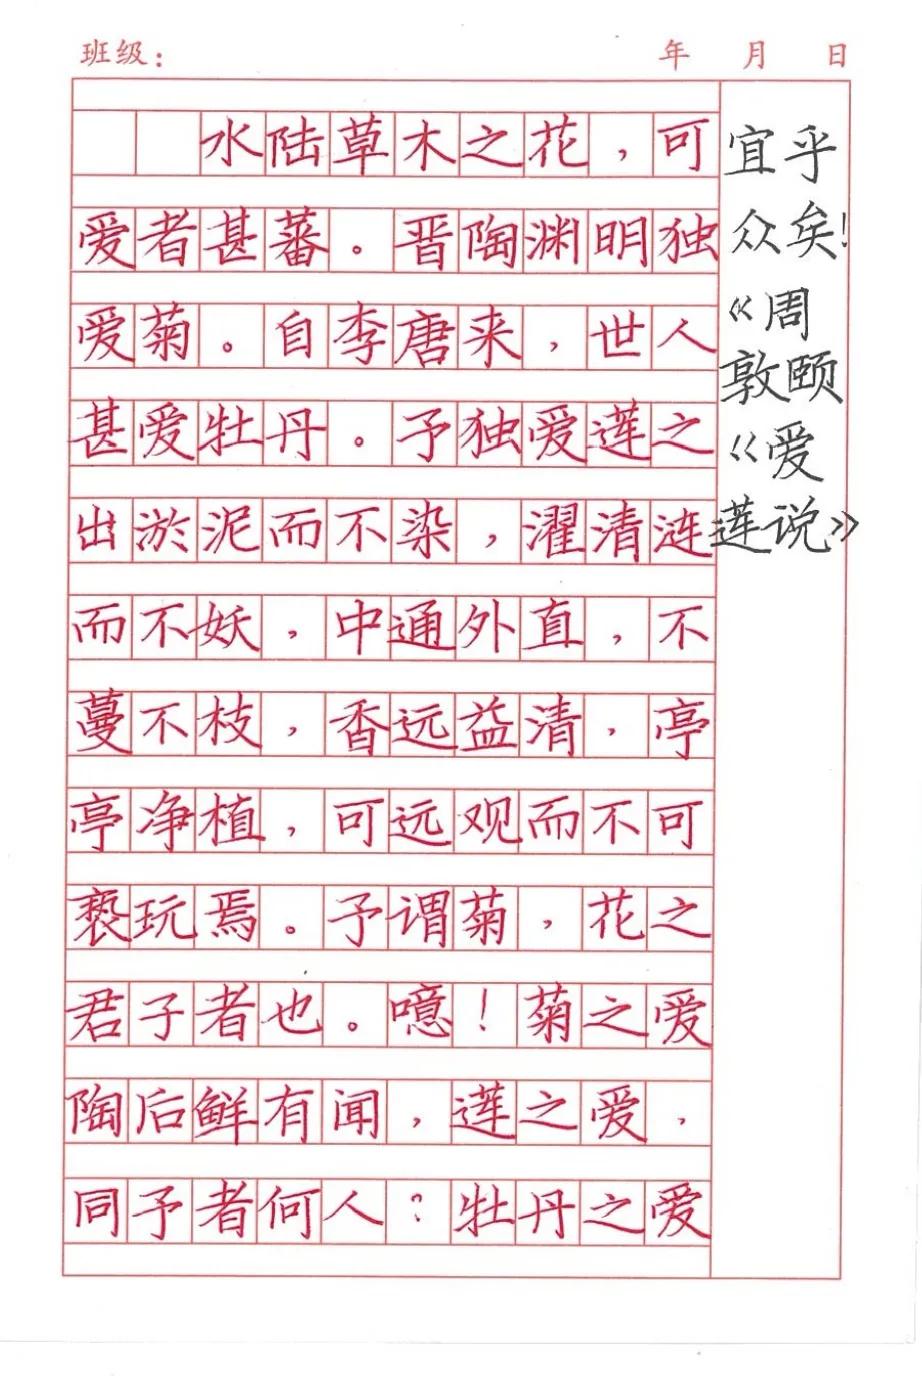 班级： 年 月 日
水陆草木之花，可
爱者甚蕃。晋陶渊明独
爱菊。自李唐来，世人
甚爱牡丹。予独爱莲之
出淤泥而不染，濯清涟
而不妖，中通外直，不
蔓不枝，香远益清，亭
亭净植，可远观而不可
亵玩焉。予谓菊，花之
君子者也。噫！菊之爱
陶后鲜有闻，莲之爱，
同予者何人？牡丹之爱
宜乎
众矣！
《周
敦颐
《爱
莲说》